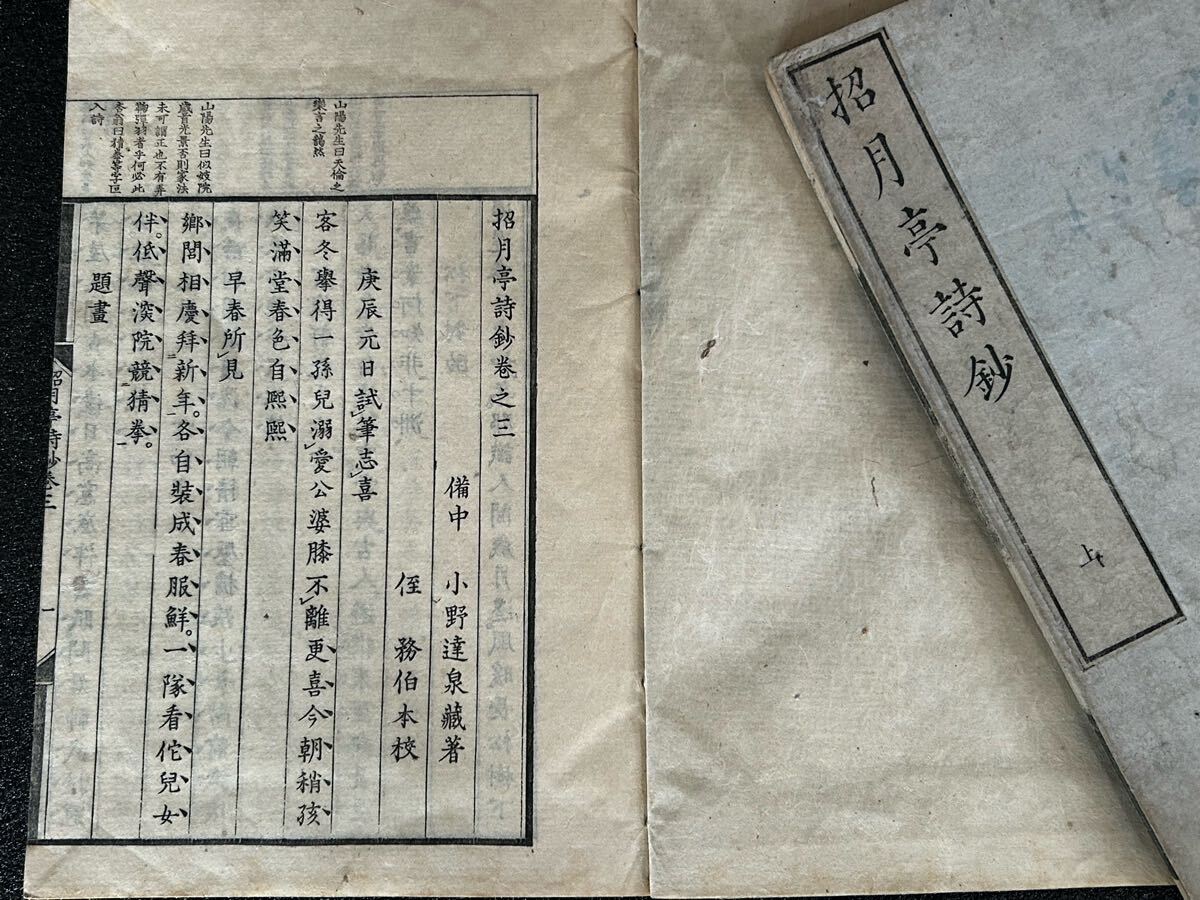 招月亭詩鈔
上
山陽先生曰天倫之
樂言之藹然
山陽先生曰似妓院
歲首光景否則家法
未可謂正也不有弄
鞠彈羽者乎何必此
杏翁曰猜拳等字叵
入詩
招月亭詩鈔卷之三
備中 小野達泉藏著
侄 務伯本校
庚辰元日試筆志喜
客冬擧得一孫兒溺愛公婆膝不離更喜今朝稍孩
笑滿堂春色自熈熈
早春所見
鄉閭相慶拜新年。各自裝成春服鮮。一隊看佗兒女
伴。低聲深院競猜拳。
題畫
招月亭詩鈔卷三
一